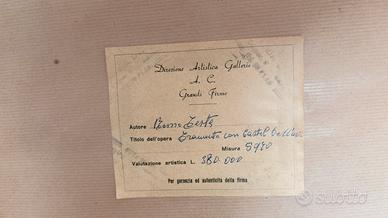 Direzione Artistica Galleria
A. C.
Grandi Firme
Autore
Titolo dell'opera Tramonto con Castel
Misura 50x70
Valutazione artistica L. 380.000
Per garanzia ed autenticità della firma
subito